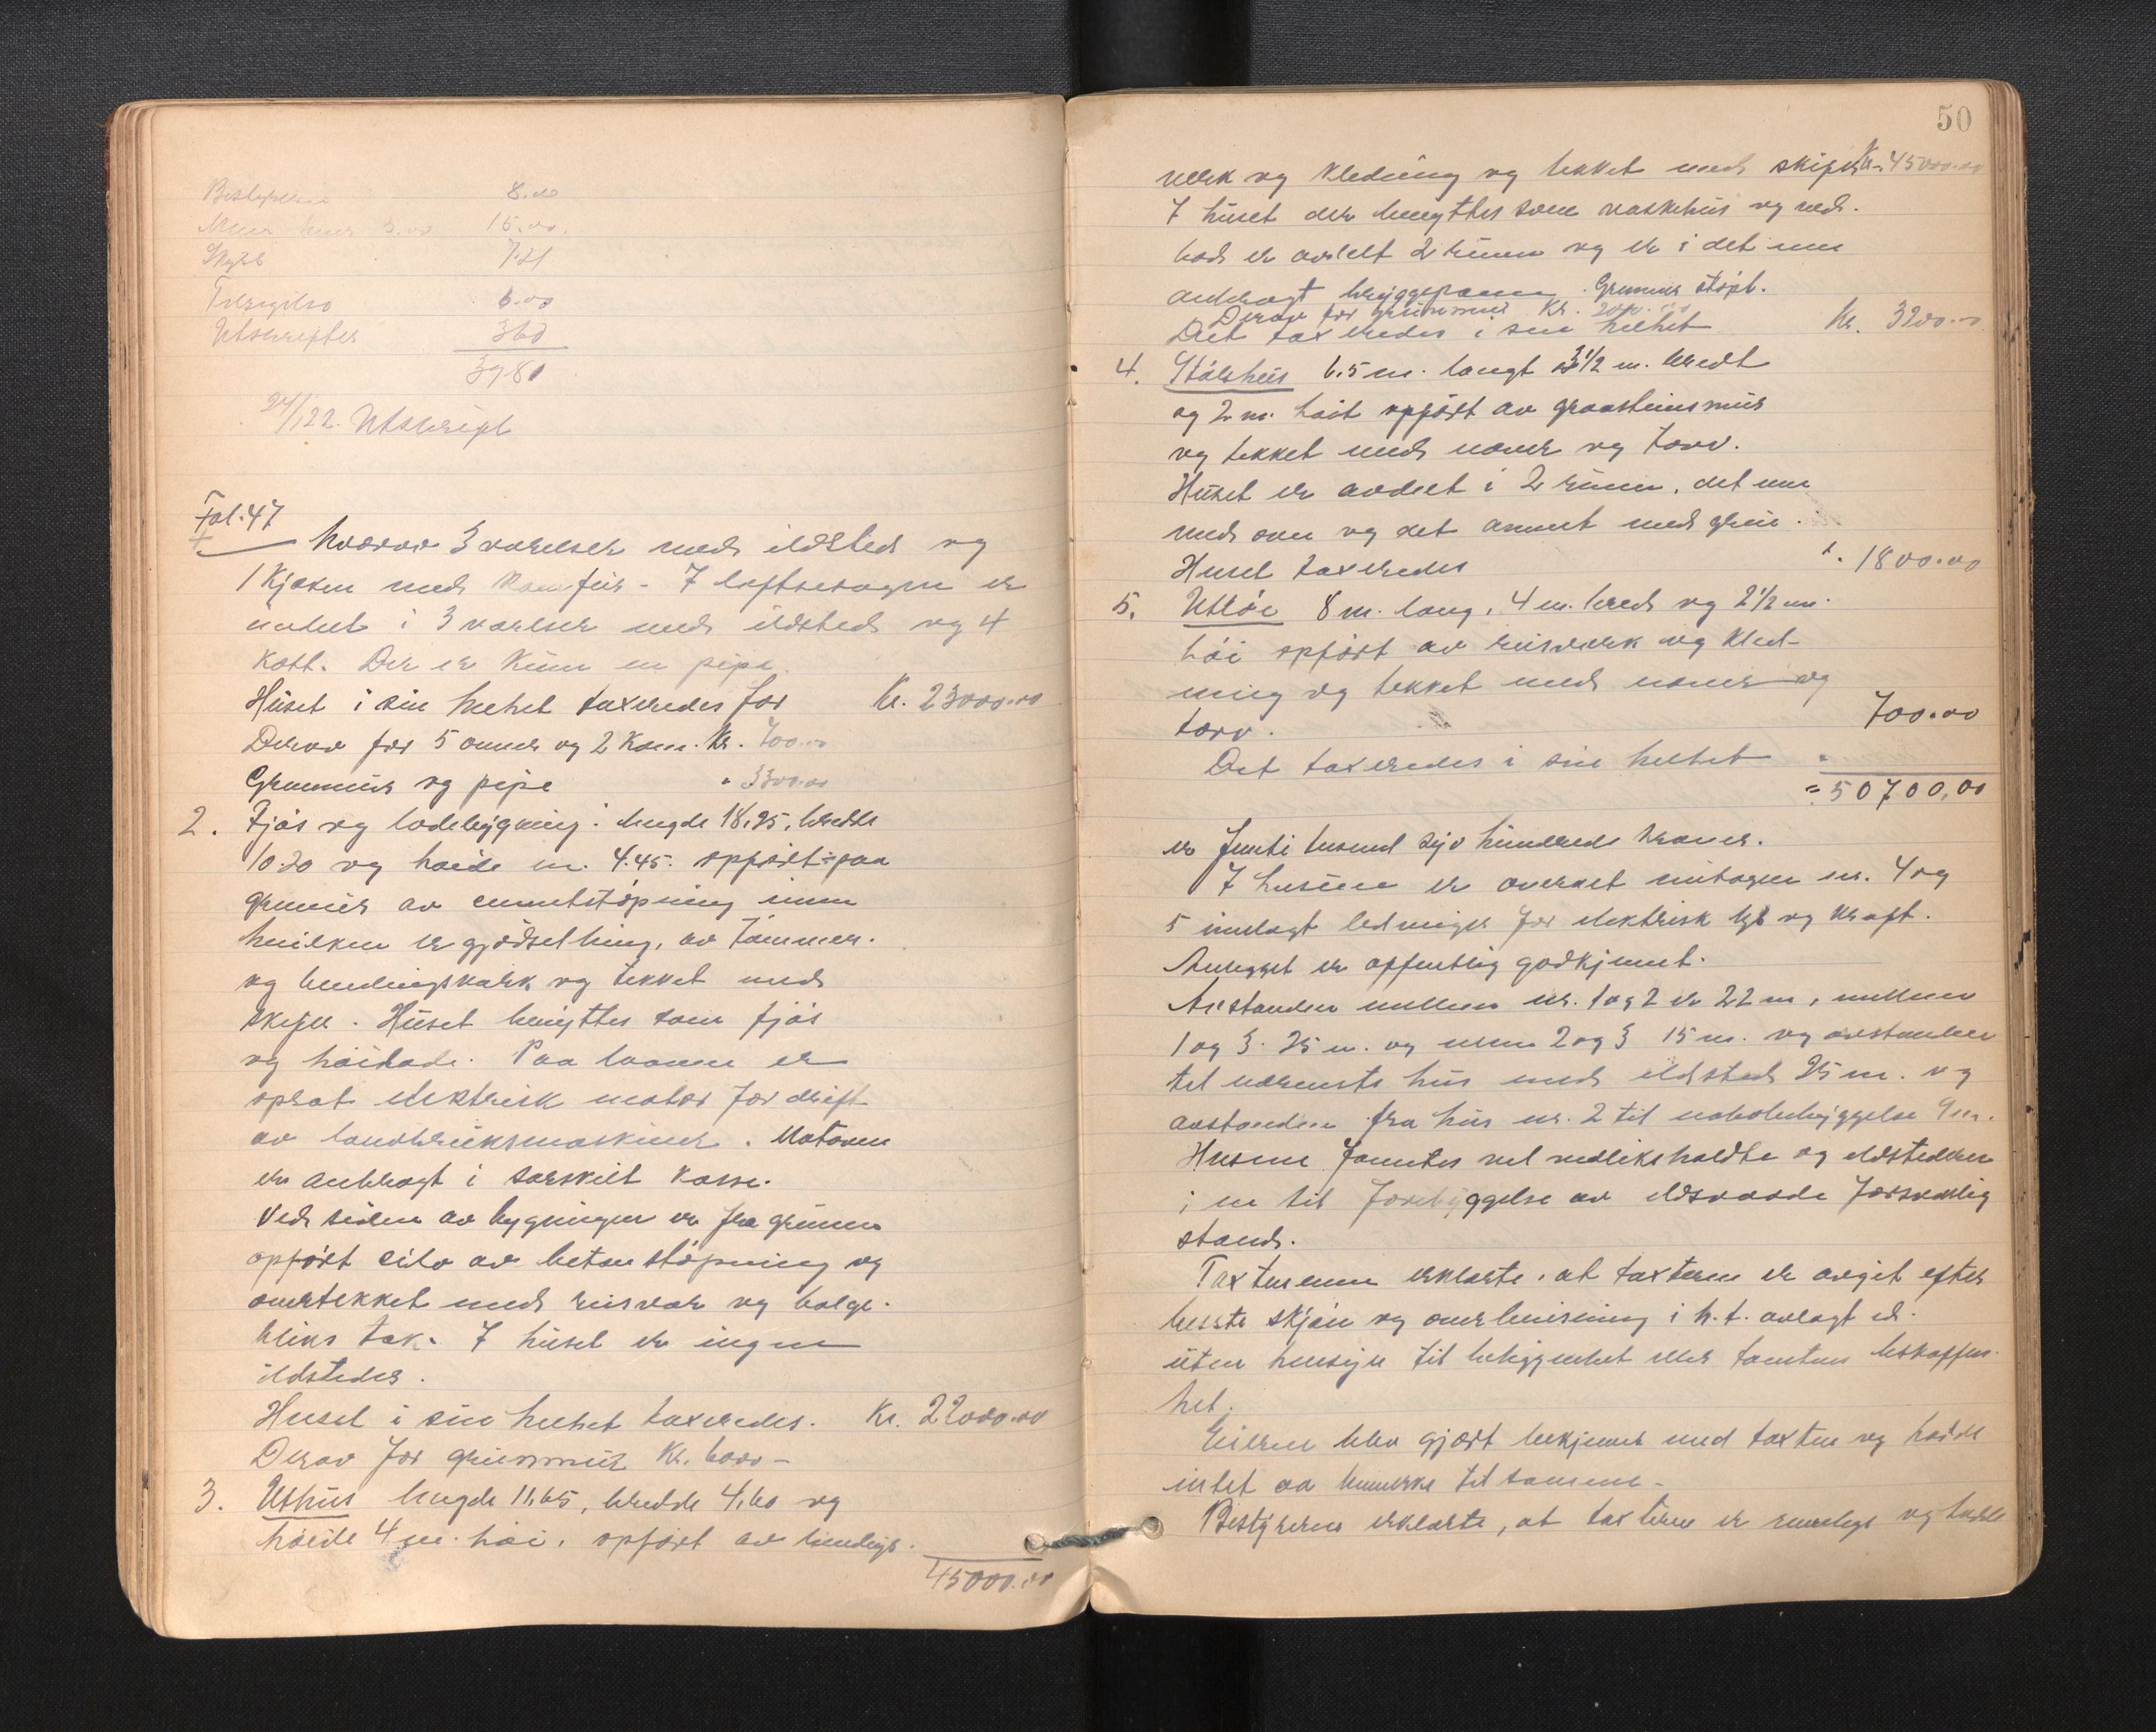 Bestyreren 8.00
3.00 15.00
Skyds 7.21
6.00
Utskrifter 3.60
39 81
24/1 22. Utskrift
Fol. 47
hvorav 3 værelser med ildsted og
1 Kjøken med Komfur - I loftsetagen er
i 3 værelser med ildsted og 4
Kott. Der er Kun en pipe.
Huset i sin helhet taxeredes for Kr. 23000.00
Derav for 5 ovner og 2 Kom. Kr. 700.00
Grunmur og pipe " 3300.00
2. Fjøs og ladebygning: lengde 18,25, bredde
10.20 og høide m. 4.45. opført paa
grunmur av cementstøpning innen
hvilken er gjødselbing, av tømmer-
og bindingsverk og tekket med
skifer. Huset benyttes som fjøs
og høilade. Paa laaven er
opsat elektrisk motor for drift
av landbruksmaskiner. Motoren
er anbragt i særskilt Kasse.
Ved siden av bygningen er fra grunnen
opført silo av betonstøpning og
overtekket med reisverk og bølge-
bliks tak. I huset er ingen
ildsteder.
Huset i sin helhet taxeredes. Kr. 22000.00
Derav for grunmur Kr. 6000 -
3. Uthus lengde 11,65, bredde 4,60 og
høide 4 m. høi, opført av bindings-
45000.00
50
verk og Kledning og tekket med skifer Kr. 45000.00
I huset der benyttes som vaskehus og ved-
bod er avdelt 2 rumm og er i det ene
anbragt bryggepanne. Grunmur støpt.
Derav for grunmur Kr. 2000.00
Det taxeredes i sin helhet Kr. 3200.00
4. Stølshus 6.5 m. langt 3 1/2 m. bredt
og 2 m. høit opført av graasteinsmur
og tekket med næver og torv.
Huset er avdelt i 2 rumm, det ene
med ovn og det annet med grue.
Huset taxeredes " 1800.00
5. Utløe 8 m. lang, 4 m. bred og 2 1/2 m.
høi opført av reisverk og Kled-
ning og tekket med never og
torv. 700.00
Det taxeredes i sin helhet "
= 50700,00
er femti tusend syv hundrede Kroner.
I husene er overalt untagen nr. 4 og
5 innlagt ledninger for elektrisk lys og Kraft.
Anlegget er offentlig godkjennt.
Avstanden mellem nr. 1 og 2 er 22 m, mellem
1 og 3 25 m. og mellem 2 og 3 15 m. og avstanden
til nærmeste hus med ildsted 25 m. og
avstanden fra hus nr. 2 til nabobebyggelse 9 m.
Husene fanntes vel vedlikeholdte og ildstederne
i en til forebyggelse av ildsvaade forsvarlig
stand.
Taxtmennene erklærte, at taxterne er avgit efter
beste skjøn og overbevisning i h.t. avlagt ed.
uten hensyn til beliggenhet eller tomtens beskaffen-
het.
Eieren blev gjort bekjennt med taxten og hadde
intet aa bemerke til samme -
Bestyreren erklærte, at taxten er rimelig og